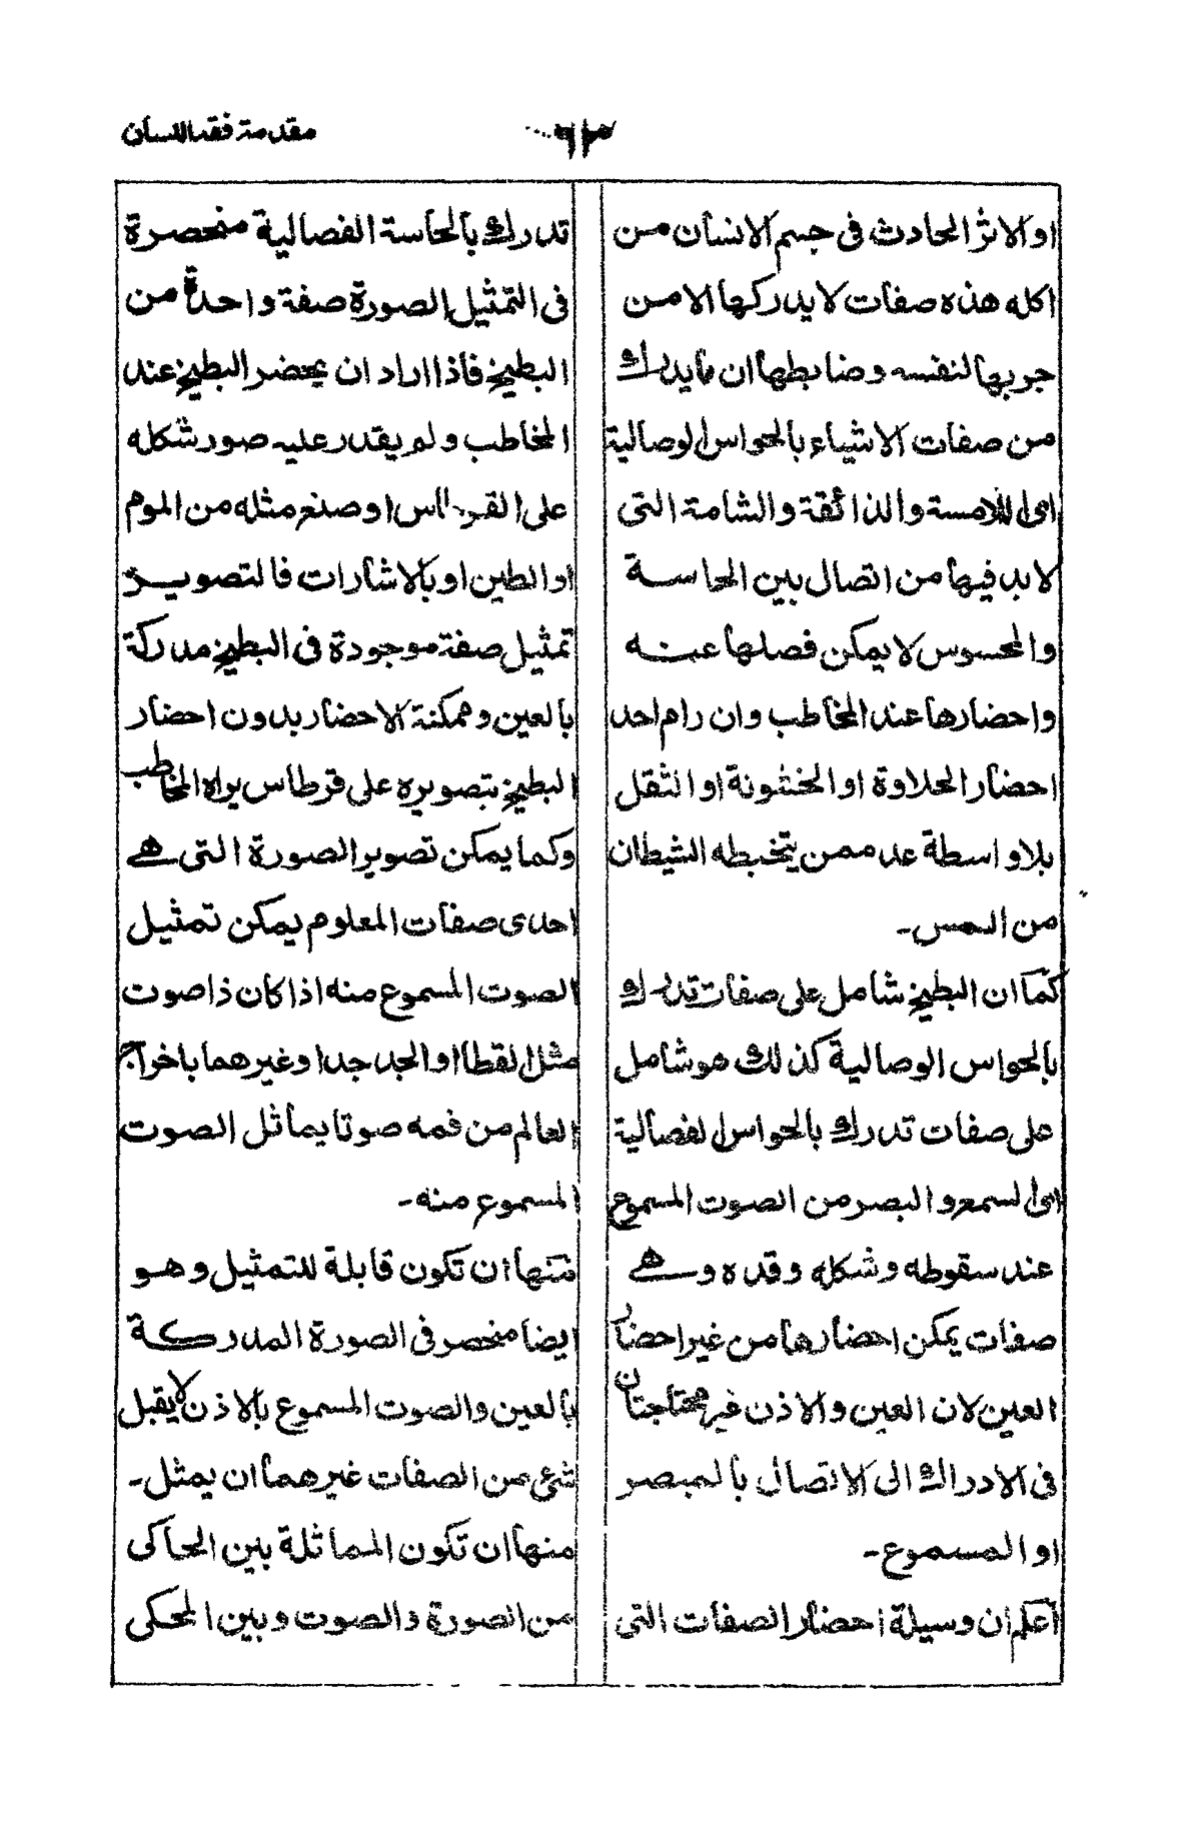 مقدمة فقه اللسان
او الاثر الحادث فى جسم الانسان من
اكله هذه صفات لا يدركها الا من
جربها لنفسه وضابطها ان ما يدرك
من صفات الاشياء بالحواس الوصالية
اى اللامسة والذائقة والشامة التى
لا بد فيها من اتصال بين الحاسة
والمحسوس لا يمكن فصلها عنه
واحضارها عند المخاطب وان رام احد
احضار الحلاوة او الخشونة او الثقل
بلا واسطة عد ممن يتخبطه الشيطان
من المس-
كما ان البطيخ شامل على صفات تدرك
بالحواس الوصالية كذلك هو شامل
على صفات تدرك بالحواس الفصالية
اى السمع والبصر من الصوت المسموع
عند سقوطه وشكله وقده وهى
صفات يمكن احضارها من غير احضار
العين لان العين والاذن غير محتاجتان
فى الادراك الى الاتصال بالمبصر
او المسموع-
اعلم ان وسيلة احضار الصفات التى
تدرك بالحاسة الفصالية منحصرة
فى التمثيل الصورة صفة واحدة من
البطيخ فاذا اراد ان يحضر البطيخ عند
المخاطب ولم يقدر عليه صور شكله
على القرطاس او صنع مثله من الموم
او الطين او بالاشارات فالتصوير
تمثيل صفة موجودة فى البطيخ مدركة
بالعين وممكنة الاحضار بدون احضار
البطيخ بتصويره على قرطاس يراه المخاطب
وكما يمكن تصوير الصورة التى هى
احدى صفات المعلوم يمكن تمثيل
الصوت المسموع منه اذا كان ذا صوت
مثل القطا او الجدجد او غيرهما باخراج
العالم من فمه صوتا يماثل الصوت
المسموع منه-
منها ان تكون قابلة للتمثيل وهو
ايضا منحصر فى الصورة المدركة
بالعين والصوت المسموع بالاذن لا يقبل
شئ من الصفات غيرهما ان يمثل-
منها ان تكون المماثلة بين الحاكى
من الصورة والصوت وبين المحكى